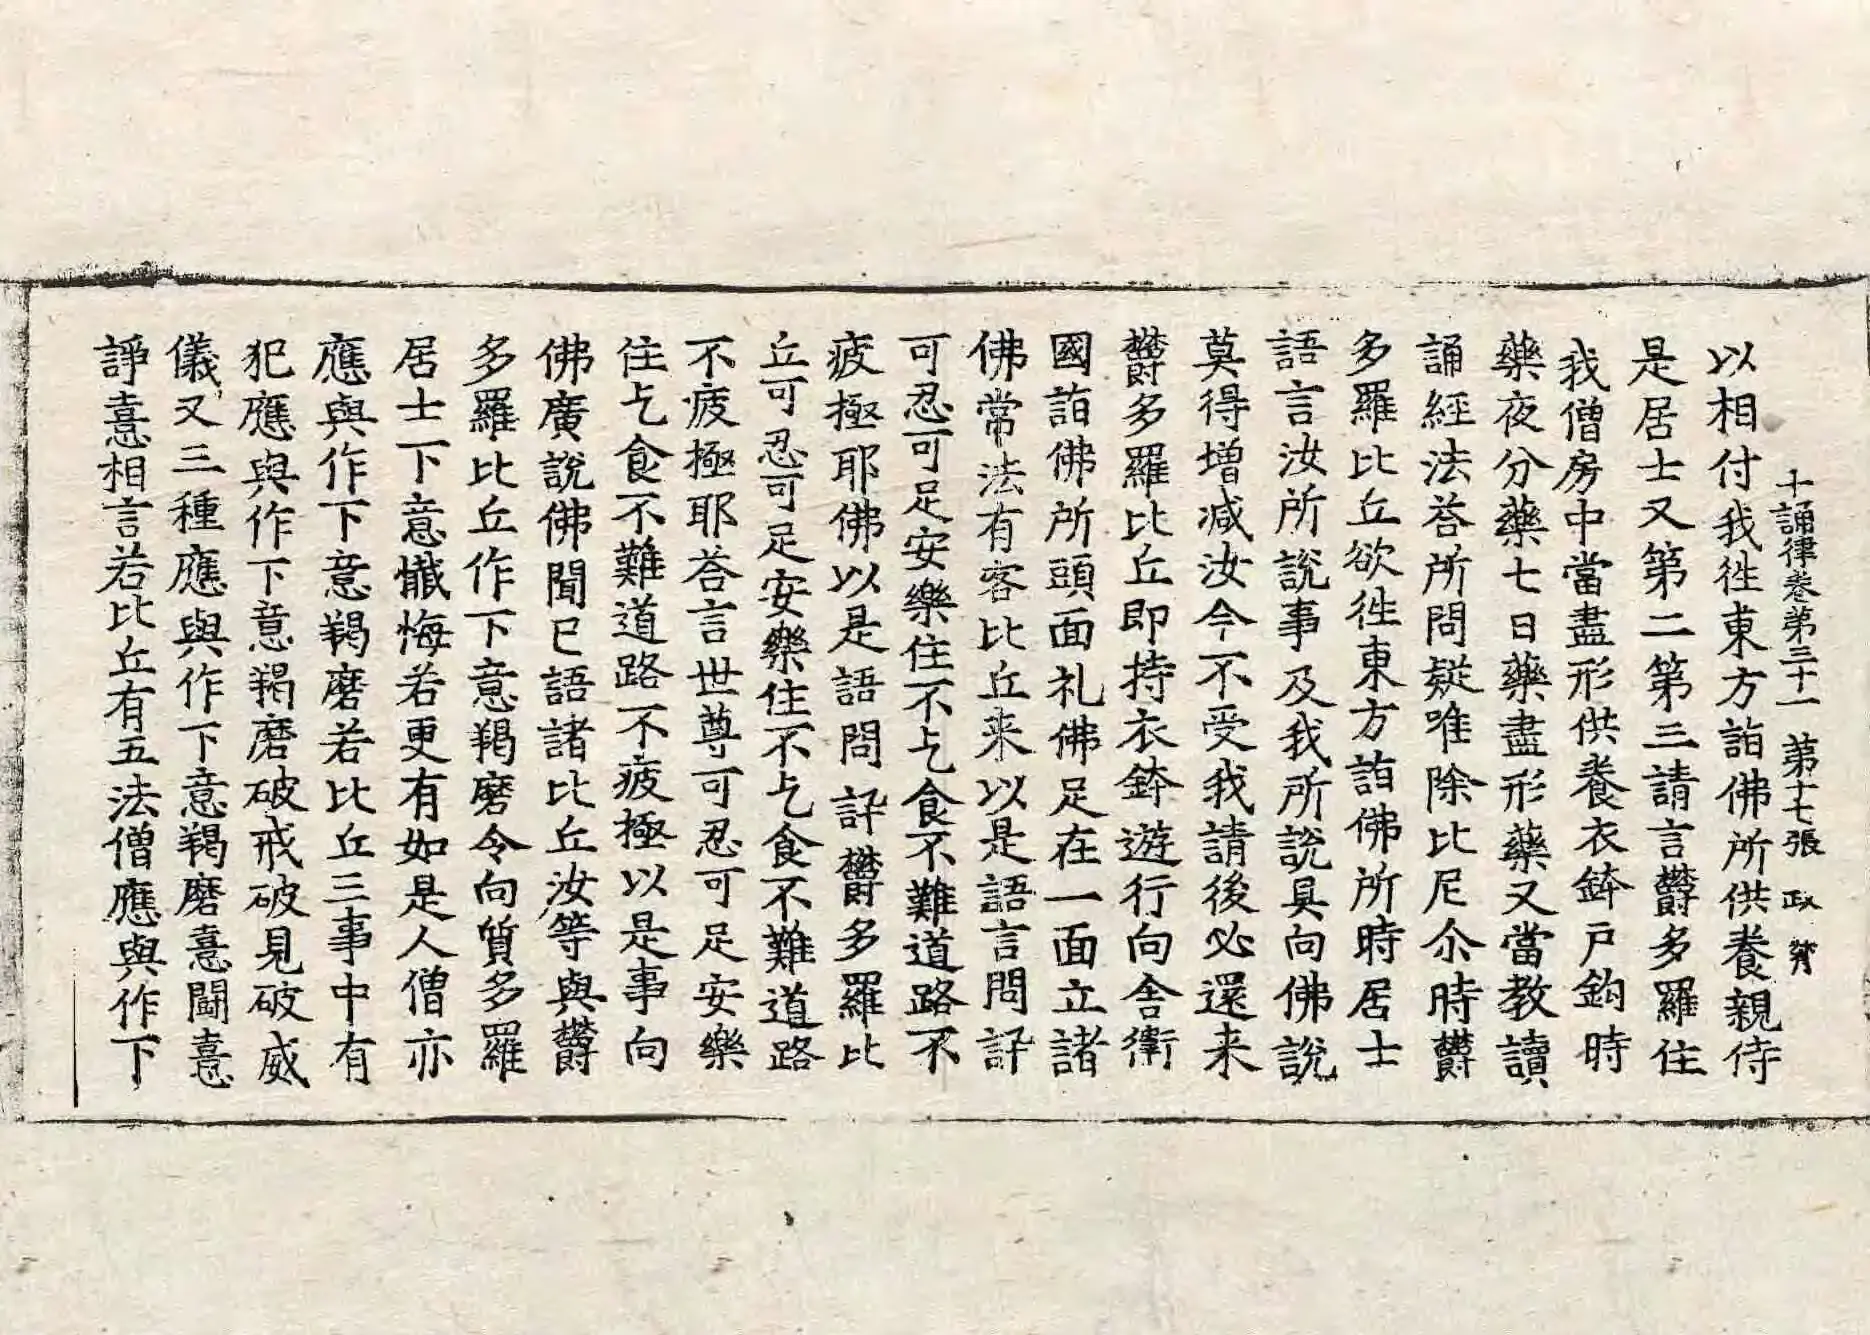 十誦律卷第三十一　第十七張　政
以相付我徃東方詣佛所供養親侍
是居士又第二第三請言欝多羅住
我僧房中當盡形供養衣鉢戶鈎時
藥夜分藥七日藥盡形藥又當教讀
誦經法荅所問疑唯除比尼尒時欝
多羅比丘欲徃東方詣佛所時居士
語言汝所說事及我所說具向佛說
莫得增減汝今不受我請後必還来
欝多羅比丘即持衣鉢遊行向舍衛
國詣佛所頭面礼佛足在一面立諸
佛常法有客比丘来以是語言問訐
可忍可足安樂住不乞食不難道路不
疲極耶佛以是語問訐欝多羅比
丘可忍可足安樂住不乞食不難道路
不疲極耶荅言世尊可忍可足安樂
住乞食不難道路不疲極以是事向
佛廣說佛聞已語諸比丘汝等與欝
多羅比丘作下意羯磨令向質多羅
居士下意懺悔若更有如是人僧亦
應與作下意羯磨若比丘三事中有
犯應與作下意羯磨破戒破見破威
儀又三種應與作下意羯磨憙鬪憙
諍憙相言若比丘有五法僧應與作下